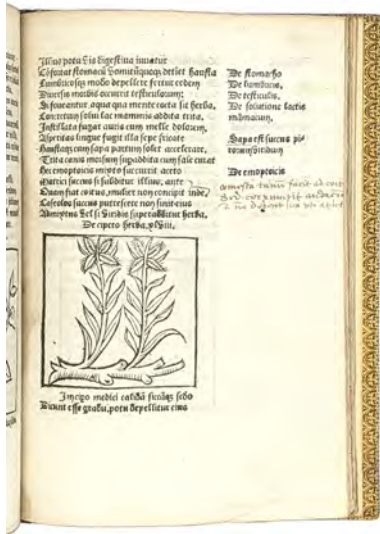 Illius potu vis digestiua iuuatur
Cõfutat stomacũ vomitũ detinet hausta
Lumbricosqȝ modo depellere fertur eodem
Diuersis morbis occurrit testiculorum:
Si foueantur aqua qua menta cocta sit herba.
Concretum solui lac mammis addita trita,
Instillata fugat auris cum melle dolorem,
Asperitas lingue fugit illa sepe fricate
Haustaqȝ cum sapa partum solet accelerare,
Trita canis morsum supaddita cum sale curat
Hec emoptoicis mixto succurrit aceto
Matrici succus si subditur illius, ante
Quam fiat coitus, mulier non concipit inde,
Caseolos succus putrescere non sinit eius
Admixtus vel si viridis superadditur herba.
De cipero herba, xlviii.
medici calidã siccãqȝ scdo
Dicunt esse gradu, potu depellitur eius
De stomacho
De lumbricis,
De testiculis.
De solutione lactis
mamarum.
Sapa est succus
De emoptoicis